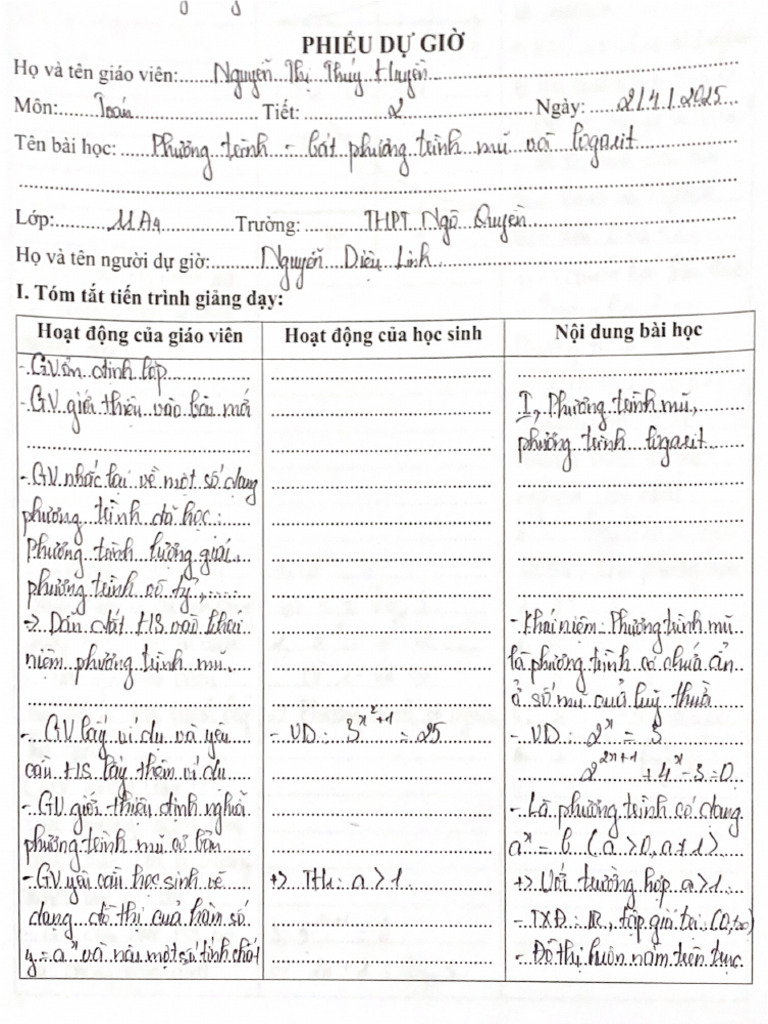 PHIẾU DỰ GIỜ
Họ và tên giáo viên: Nguyễn Thị Thúy Huyền
Môn: Toán Tiết: 2 Ngày: 2/4/2025
Tên bài học: Phương trình - bất phương trình mũ và logarit
Lớp: 11A4 Trường: THPT Ngô Quyền
Họ và tên người dự giờ: Nguyễn Diệu Linh
I. Tóm tắt tiến trình giảng dạy:
Hoạt động của giáo viên Hoạt động của học sinh Nội dung bài học
- GV ổn định lớp
- GV giới thiệu vào bài mới I, Phương trình mũ,
phương trình logarit
- GV nhắc lại về một số dạng
phương trình đã học:
Phương trình lượng giác,
phương trình vô tỷ,......
-> Dẫn dắt HS vào khái - Khái niệm: Phương trình mũ
niệm phương trình mũ. là phương trình có chứa ẩn
ở số mũ của luỹ thừa
- GV lấy ví dụ và yêu - VD: 3^{x^2+1} = 25 - VD: 2^x = 3
cầu HS lấy thêm ví dụ 2^{2x+1} + 4^x - 3 = 0
- GV giới thiệu định nghĩa - Là phương trình có dạng
phương trình mũ cơ bản a^x = b (a > 0, a ≠ 1)
- GV yêu cầu học sinh vẽ +> TH1: a > 1 +> Với trường hợp a > 1
dạng đồ thị của hàm số - TXĐ: ℝ, tập giá trị (0, +∞)
y = a^x và nêu một số tính chất - Đồ thị luôn nằm trên trục